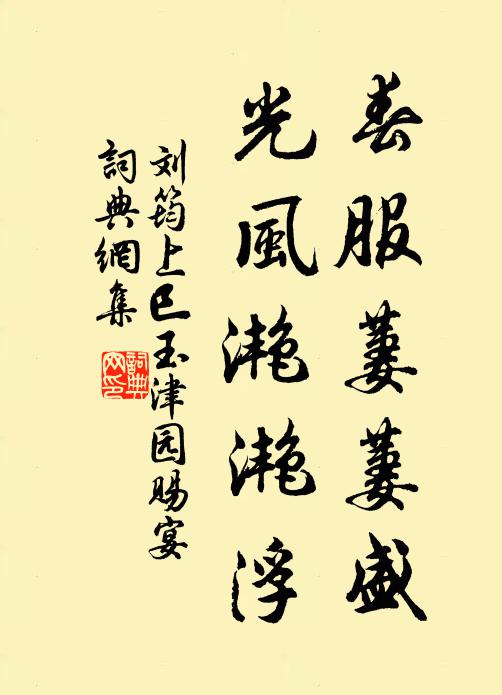 春服萋萋盛
光風滟滟浮
刘筠上巳玉津园賜宴
詞典網集
詞典
网印